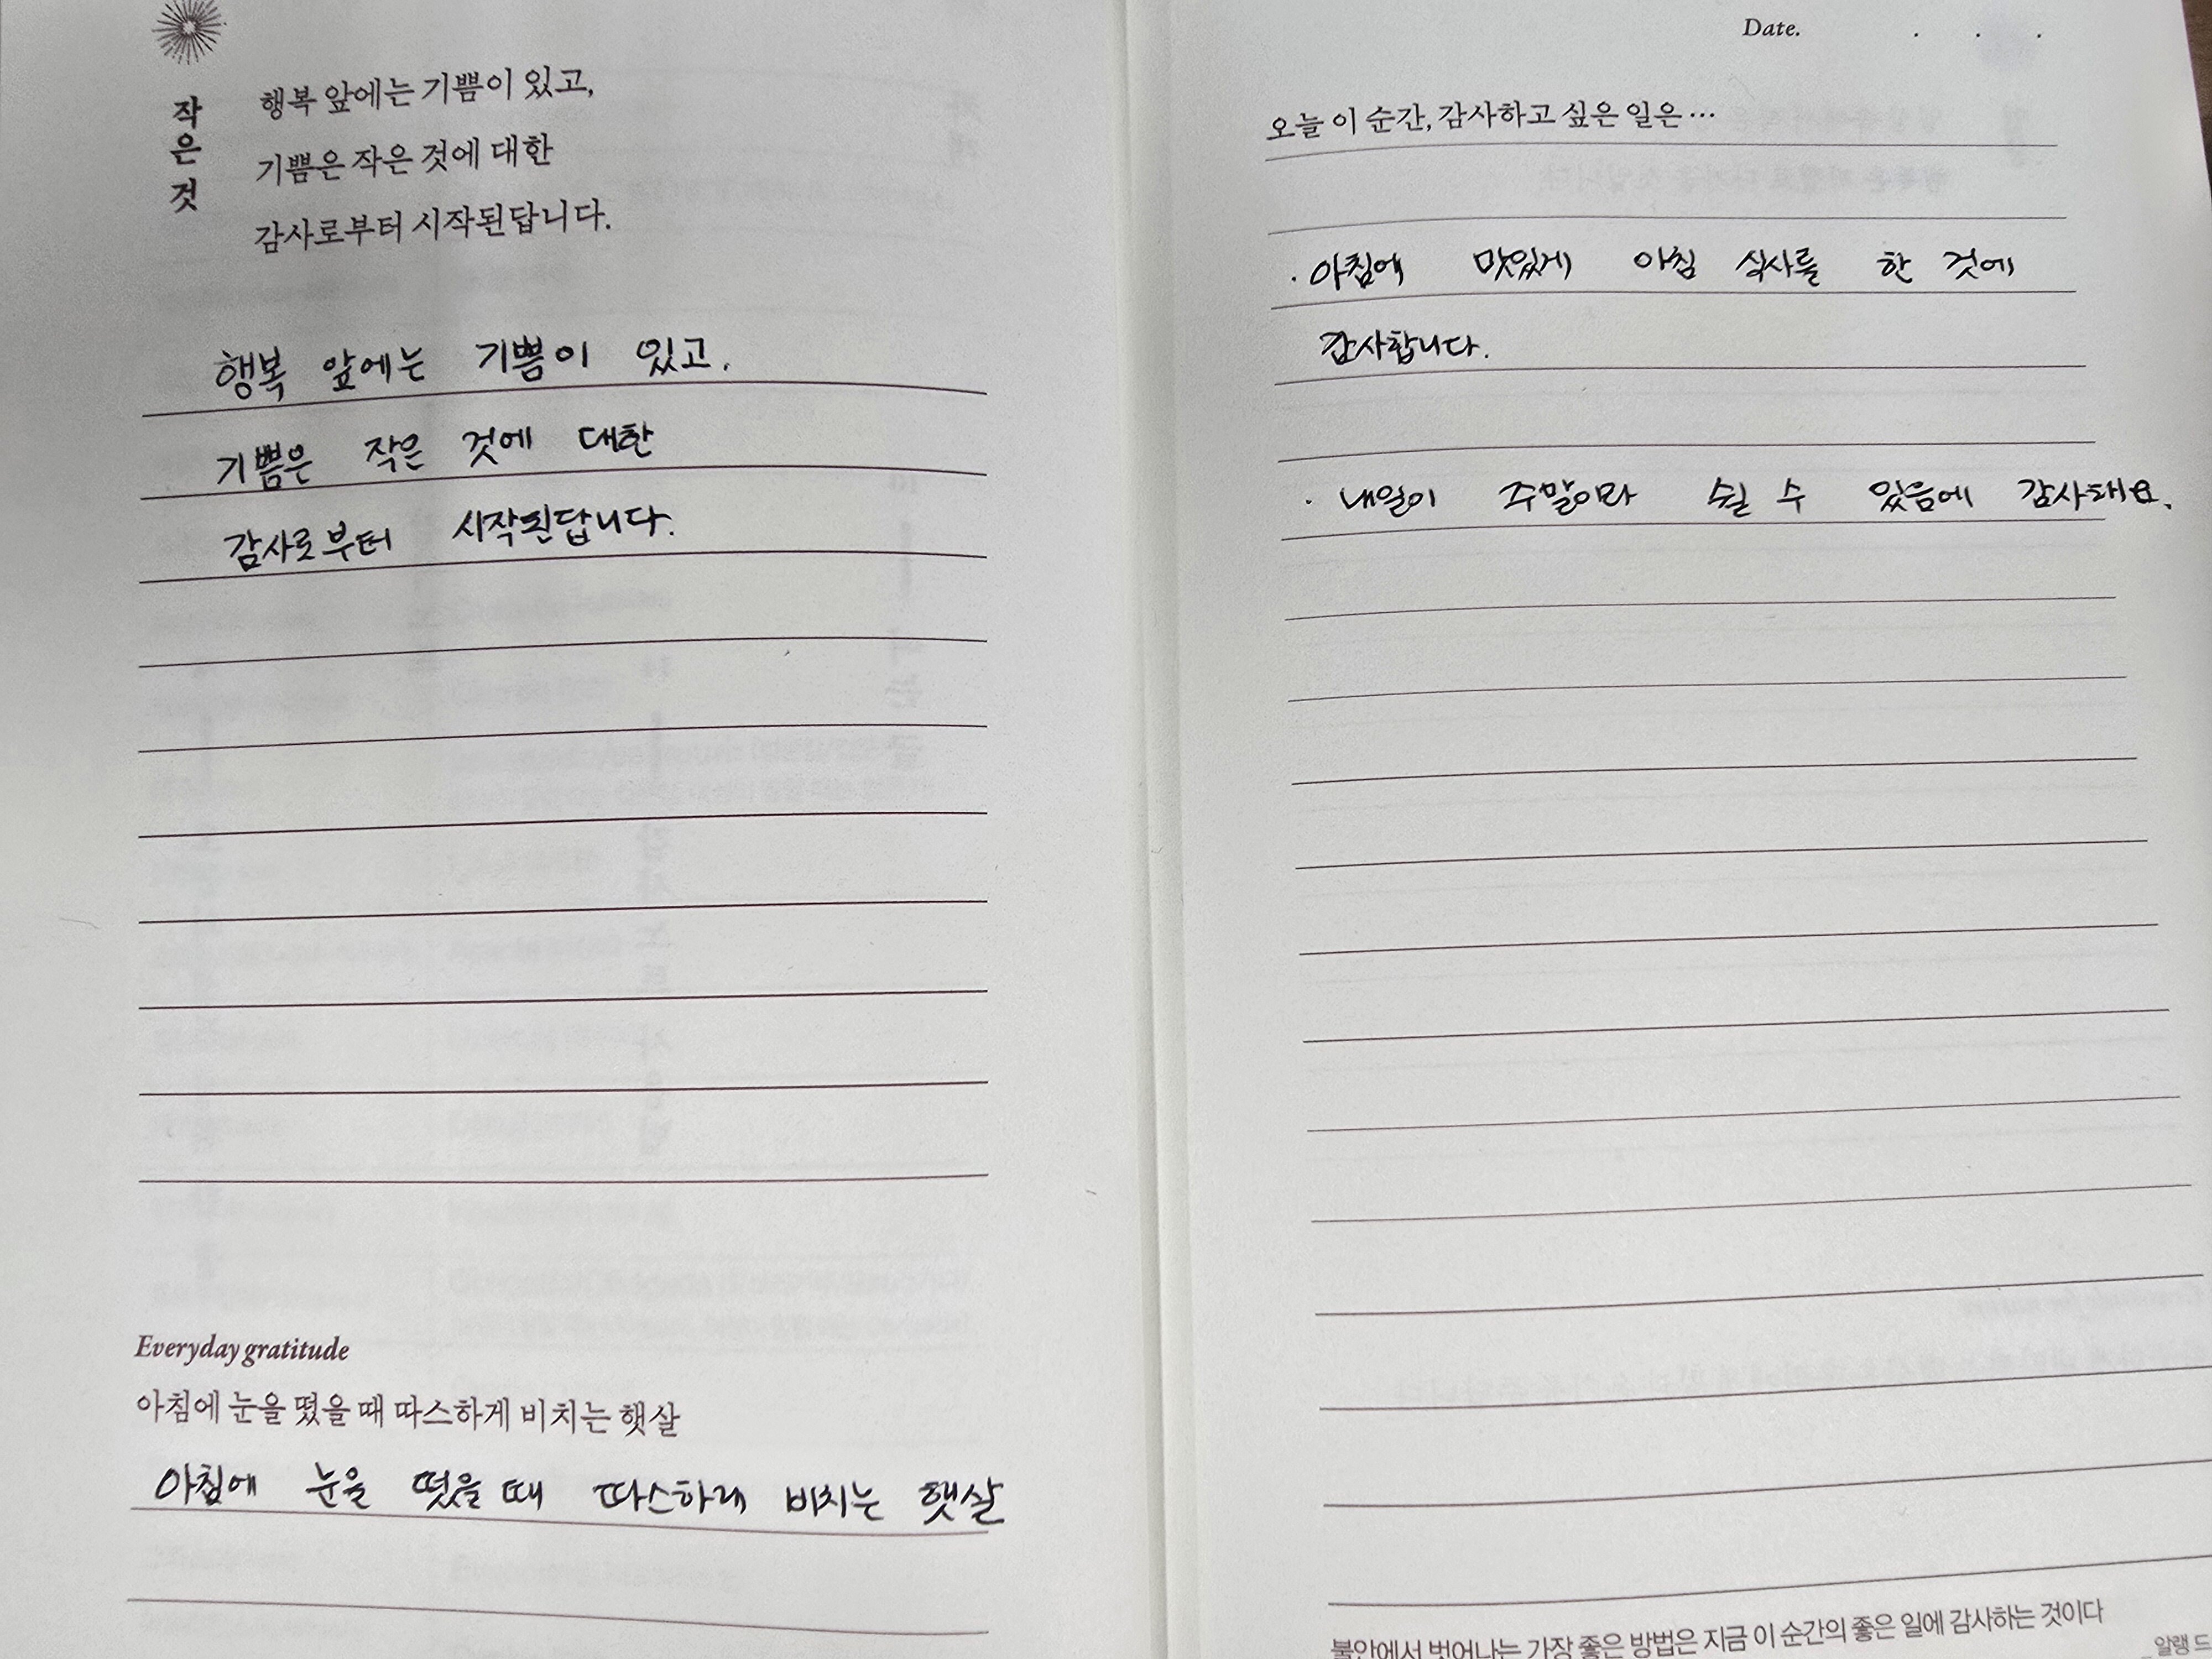 작은 것
행복 앞에는 기쁨이 있고,
기쁨은 작은 것에 대한
감사로부터 시작된답니다.
행복 앞에는 기쁨이 있고.
기쁨은 작은 것에 대한
감사로부터 시작된답니다.
Everyday gratitude
아침에 눈을 떴을 때 따스하게 비치는 햇살
아침에 눈을 떴을 때 따스하게 비치는 햇살
Date. . . .
오늘 이 순간, 감사하고 싶은 일은…
· 아침에 맛있게 아침 식사를 한 것에
감사합니다.
· 내일이 주말이라 쉴 수 있음에 감사해요.
불안에서 벗어나는 가장 좋은 방법은 지금 이 순간의 좋은 일에 감사하는 것이다
_알랭 드